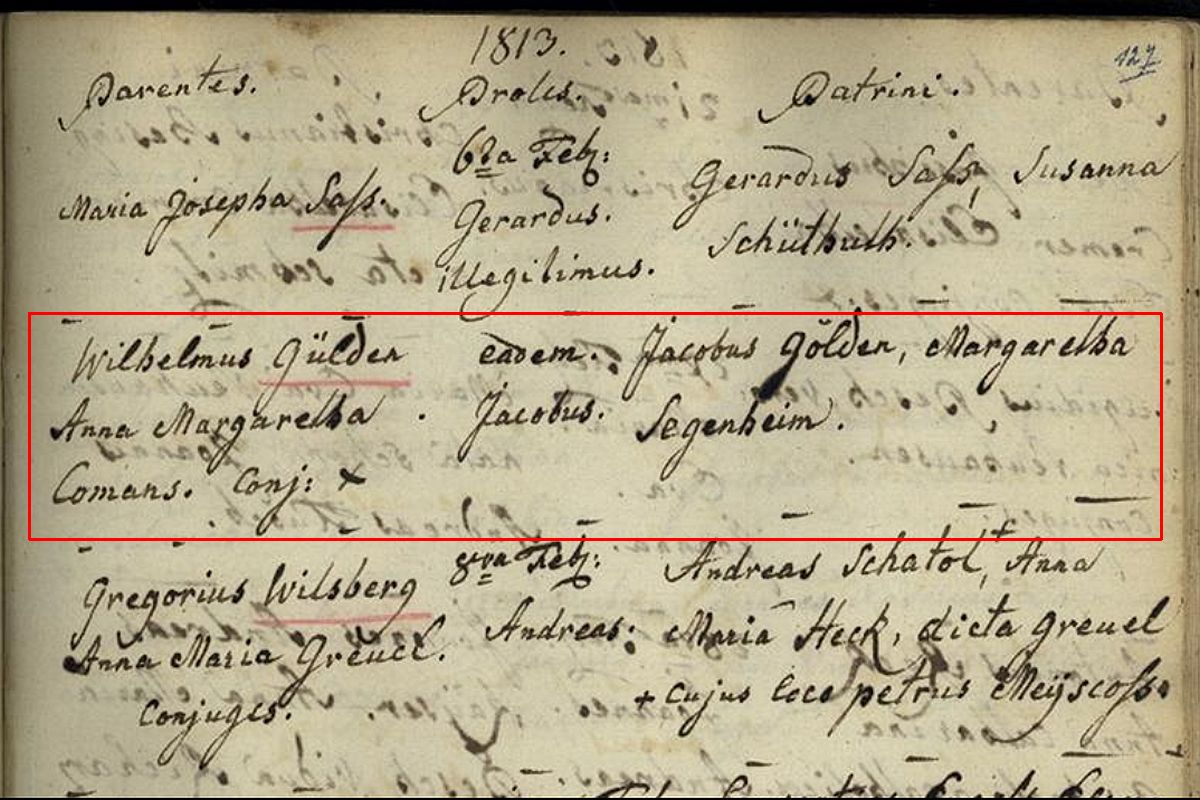 1813.
127
Parentes. Proles. Patrini.
6ta Feb:
Maria Josepha Sass. Gerardus. Gerardus Sass, Susanna
illegitimus. Schüthuth.
Wilhelmus Gülden eadem. Jacobus Gölden, Margaretha
Anna Margaretha . Jacobus. Segenheim.
Comans. Conj: +
8va Feb:
Gregorius Wilsberg Andreas Schatol,+ Anna
Anna Maria Greuel. Andreas: Maria Heck, dicta Greuel
Conjuges. + cujus loco petrus Meÿscoss.